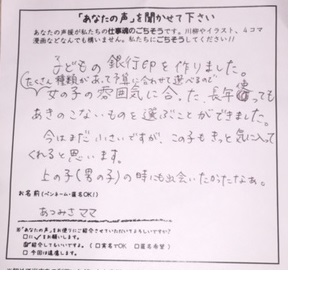 「あなたの声」を聞かせて下さい
あなたの声援が私たちの仕事魂のごちそうです。川柳やイラスト、4コマ
漫画などなんでも構いません。私たちにごちそうしてください!!
子どもの銀行印を作りました。
(たくさん種類があって予算に合わせて選べるので)
女の子の雰囲気に合った、長年使っても
あきのこないものを選ぶことができました。
今はまだ小さいですが、この子もきっと気に入って
くれると思います。
上の子(男の子)の時にも出会いたかたなぁ。
お名前(ペンネーム・匿名OK!)
あつみさママ
※「あなたの声」をお便りにご紹介させていただいてよろしいですか?
□に✓をお願いします。
紹介してもいいですよ。(□実名でOK □匿名希望)
□今回は遠慮します。